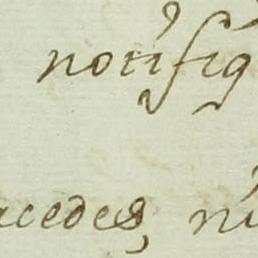 notifig
acedes, ni